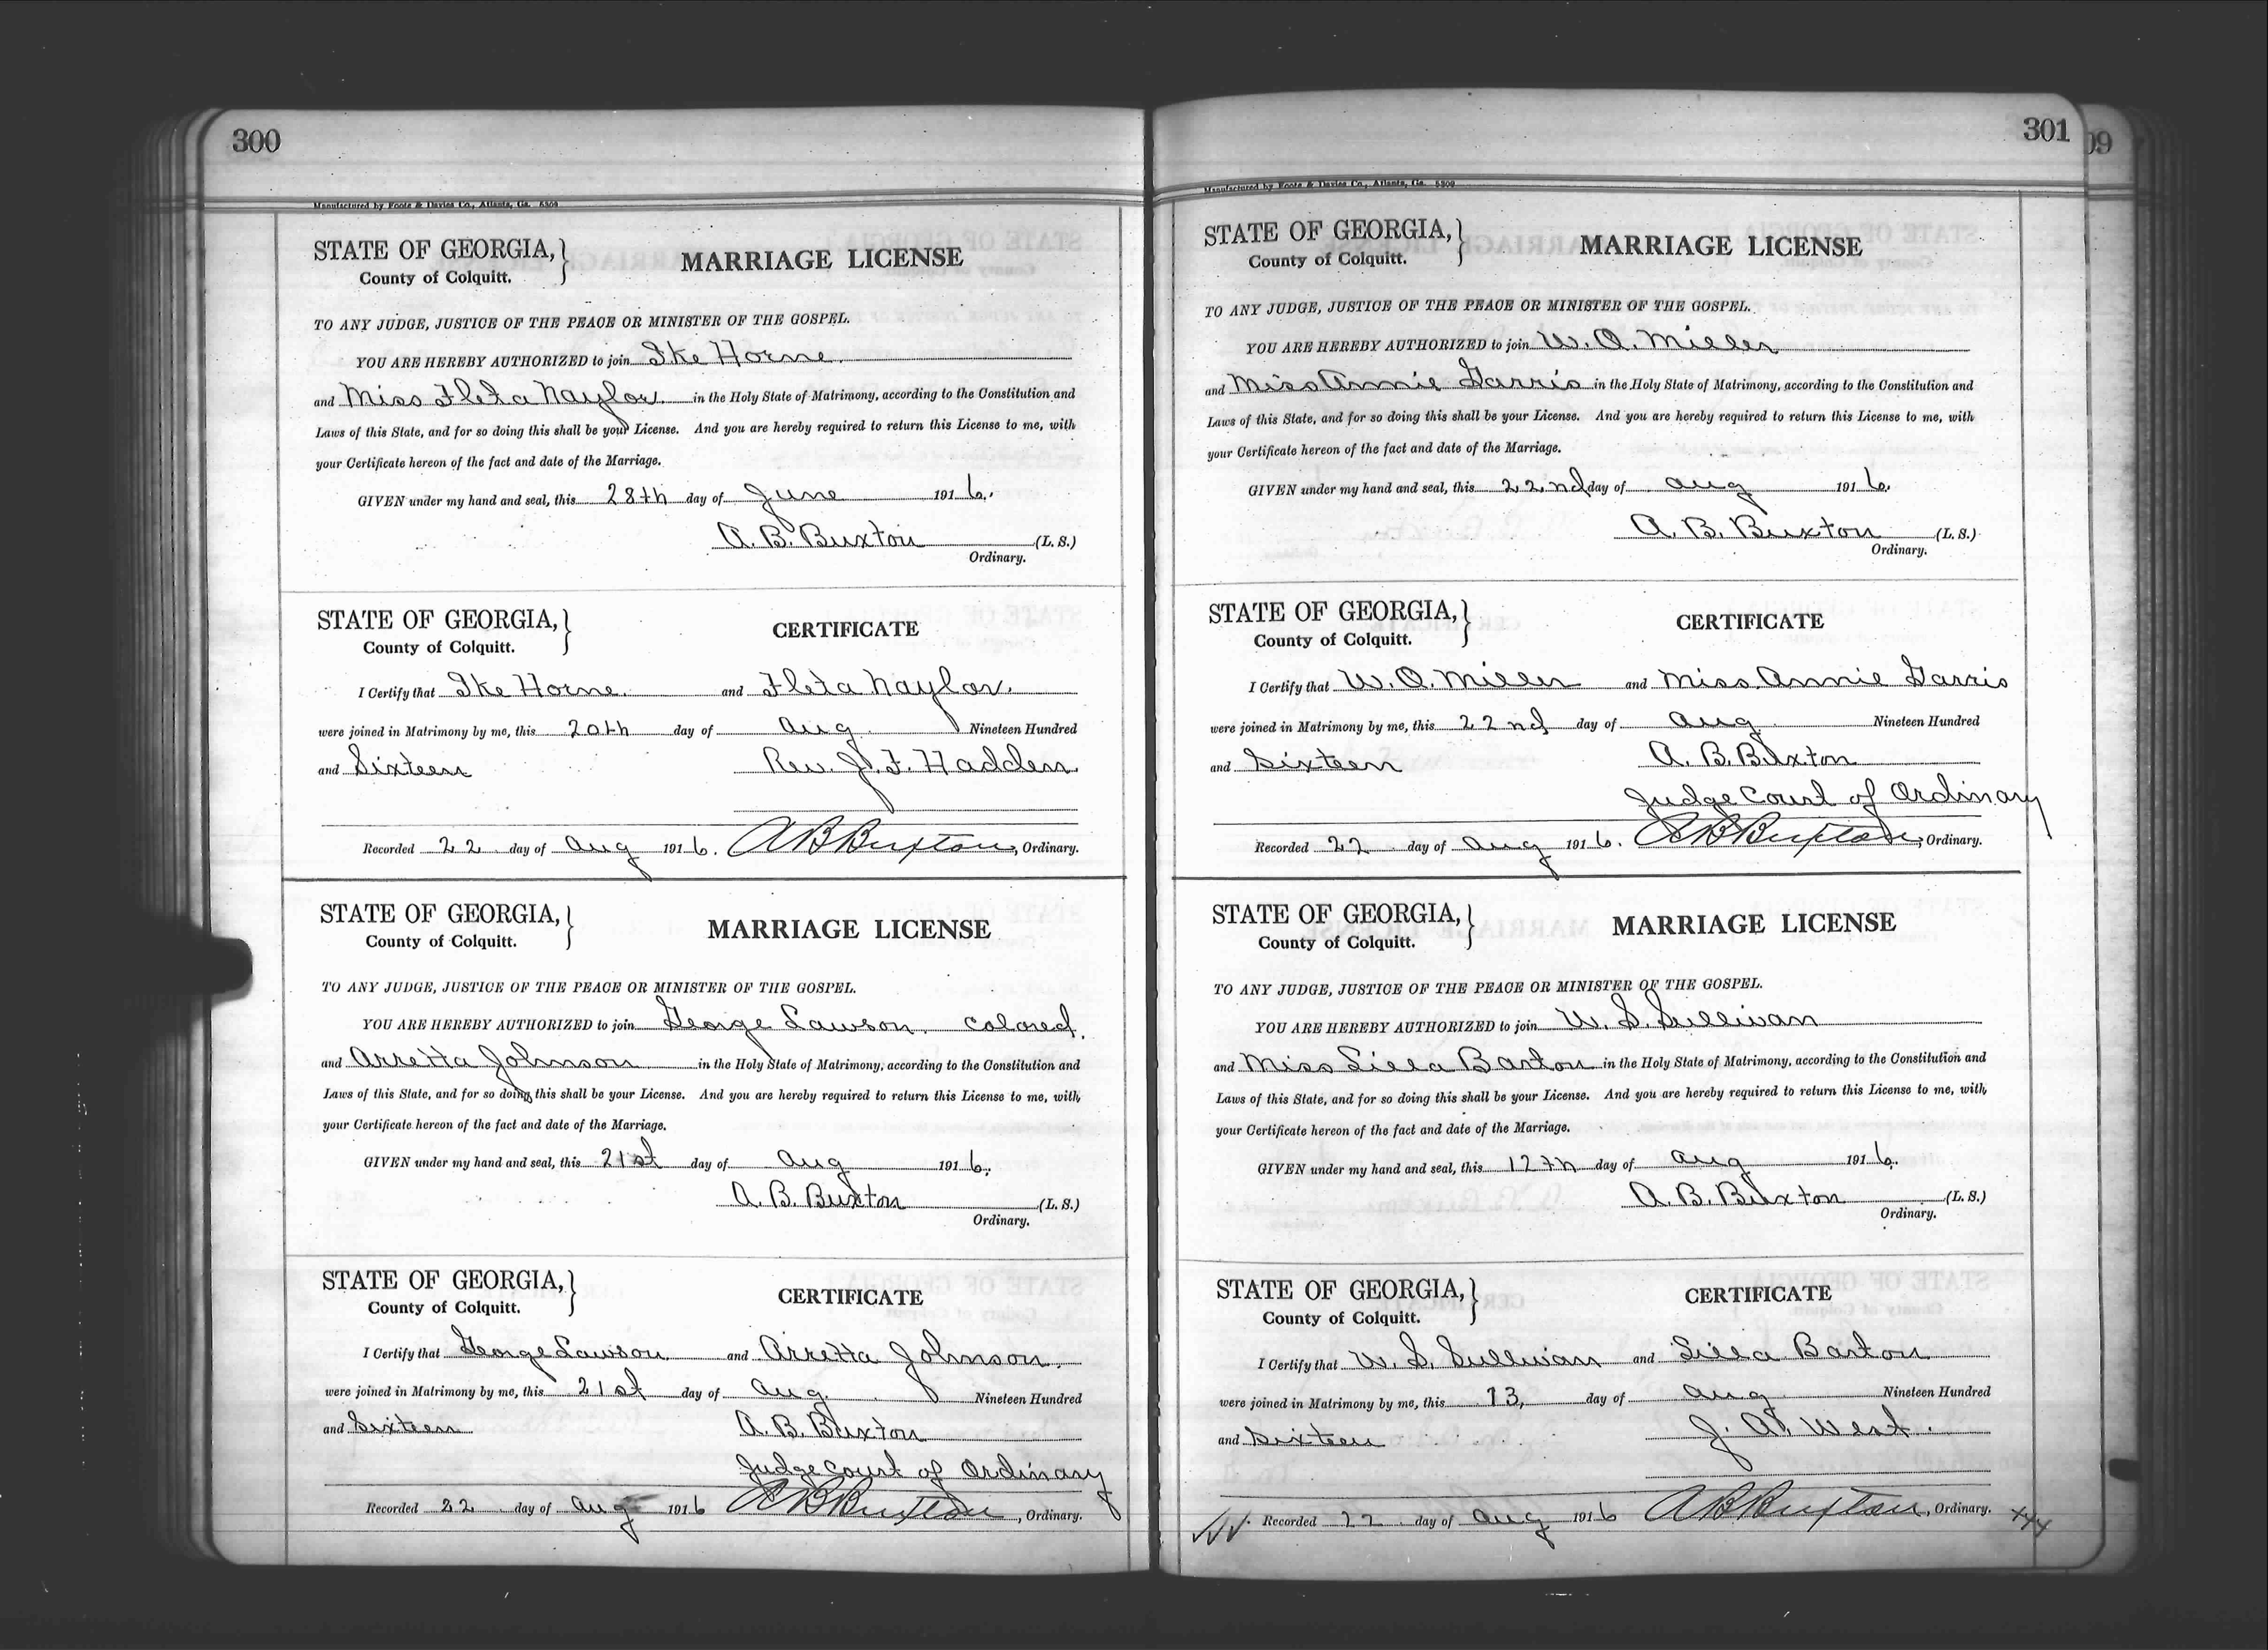 300
Manufactured by Foote & Davies Co., Atlanta, Ga. 5309
STATE OF GEORGIA,
County of Colquitt.
MARRIAGE LICENSE
TO ANY JUDGE, JUSTICE OF THE PEACE OR MINISTER OF THE GOSPEL.
YOU ARE HEREBY AUTHORIZED to join Ike Horne.
and Miss Fleta Naylor. in the Holy State of Matrimony, according to the Constitution and
Laws of this State, and for so doing this shall be your License. And you are hereby required to return this License to me, with
your Certificate hereon of the fact and date of the Marriage.
GIVEN under my hand and seal, this 28th day of June 1916.
A. B. Buxton (L. S.)
Ordinary.
STATE OF GEORGIA,
County of Colquitt.
CERTIFICATE
I Certify that Ike Horne. and Fleta Naylor.
were joined in Matrimony by me, this 20th day of Aug. Nineteen Hundred
and Sixteen Rev. J. F. Hadden.
Recorded 22 day of Aug 1916. A B Buxton, Ordinary.
STATE OF GEORGIA,
County of Colquitt.
MARRIAGE LICENSE
TO ANY JUDGE, JUSTICE OF THE PEACE OR MINISTER OF THE GOSPEL.
YOU ARE HEREBY AUTHORIZED to join George Lawson. Colored.
and Arretta Johnson in the Holy State of Matrimony, according to the Constitution and
Laws of this State, and for so doing this shall be your License. And you are hereby required to return this License to me, with
your Certificate hereon of the fact and date of the Marriage.
GIVEN under my hand and seal, this 21st day of Aug 1916.
A. B. Buxton (L. S.)
Ordinary.
STATE OF GEORGIA,
County of Colquitt.
CERTIFICATE
I Certify that George Lawson and Arretta Johnson.
were joined in Matrimony by me, this 21st day of Aug. Nineteen Hundred
and Sixteen A. B. Buxton
Judge Court of Ordinary
Recorded 22 day of Aug 1916 A B Buxton, Ordinary.
301
09
Manufactured by Foote & Davies Co., Atlanta, Ga. 5309
STATE OF GEORGIA,
County of Colquitt.
MARRIAGE LICENSE
TO ANY JUDGE, JUSTICE OF THE PEACE OR MINISTER OF THE GOSPEL.
YOU ARE HEREBY AUTHORIZED to join W. O. Miller
and Miss Annie Garris in the Holy State of Matrimony, according to the Constitution and
Laws of this State, and for so doing this shall be your License. And you are hereby required to return this License to me, with
your Certificate hereon of the fact and date of the Marriage.
GIVEN under my hand and seal, this 22nd day of Aug 1916.
A. B. Buxton (L. S.)
Ordinary.
STATE OF GEORGIA,
County of Colquitt.
CERTIFICATE
I Certify that W. O. Miller and Miss Annie Garris
were joined in Matrimony by me, this 22nd day of Aug Nineteen Hundred
and Sixteen A. B. Buxton
Judge Court of Ordinary
Recorded 22 day of Aug 1916. A B Buxton, Ordinary.
STATE OF GEORGIA,
County of Colquitt.
MARRIAGE LICENSE
TO ANY JUDGE, JUSTICE OF THE PEACE OR MINISTER OF THE GOSPEL.
YOU ARE HEREBY AUTHORIZED to join W. S. Sullivan
and Miss Silla Barton in the Holy State of Matrimony, according to the Constitution and
Laws of this State, and for so doing this shall be your License. And you are hereby required to return this License to me, with
your Certificate hereon of the fact and date of the Marriage.
GIVEN under my hand and seal, this 12th day of Aug 1916.
A. B. Buxton (L. S.)
Ordinary.
STATE OF GEORGIA,
County of Colquitt.
CERTIFICATE
I Certify that W. S. Sullivan and Silla Barton
were joined in Matrimony by me, this 13, day of Aug Nineteen Hundred
and Sixteen J. A. West.
Recorded 22 day of Aug 1916 A B Buxton, Ordinary.